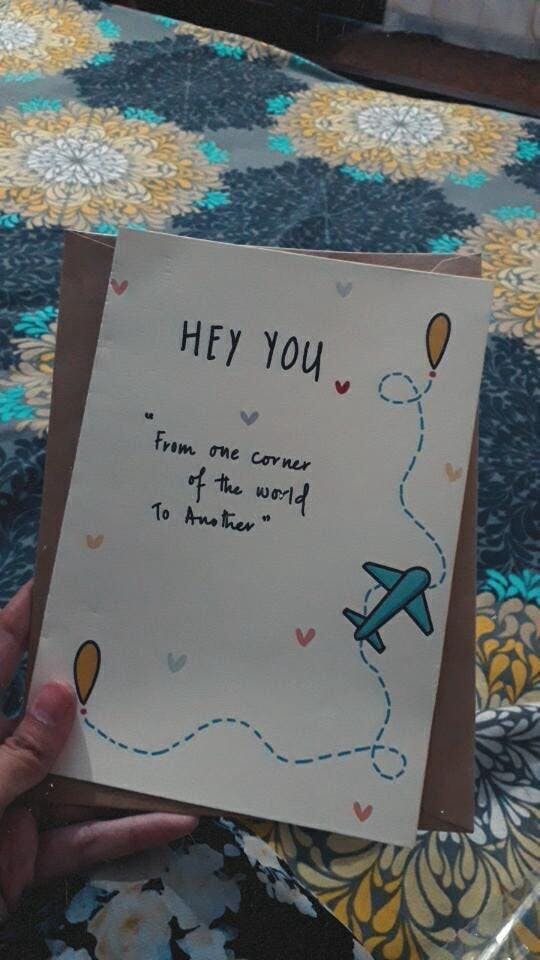 HEY YOU
"From one corner
of the world
To Another"